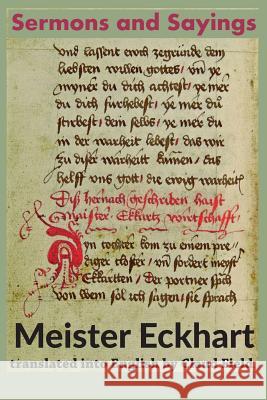 Sermons and Sayings
und lassent eroch zegründe dem
liebsten willen gottes, vn ye
myner du dich achtest, ye mer
du dich fürhebest, ye mer du
stirbest dem selbs, ye mer du
in der warheit lebest, das wir
zu diser warheitt kumen, das
helff uns gott, die ewig warheit
Diß hernach geschriben haist
maister Ekkartz wirtschafft
Ain tochter kom zu einem pre
diger closter, vn fordert meyst
Ekkartten, Der portner sprach
von wem sol ich sagen, sie sprach
Meister Eckhart
translated into English by Claud Field